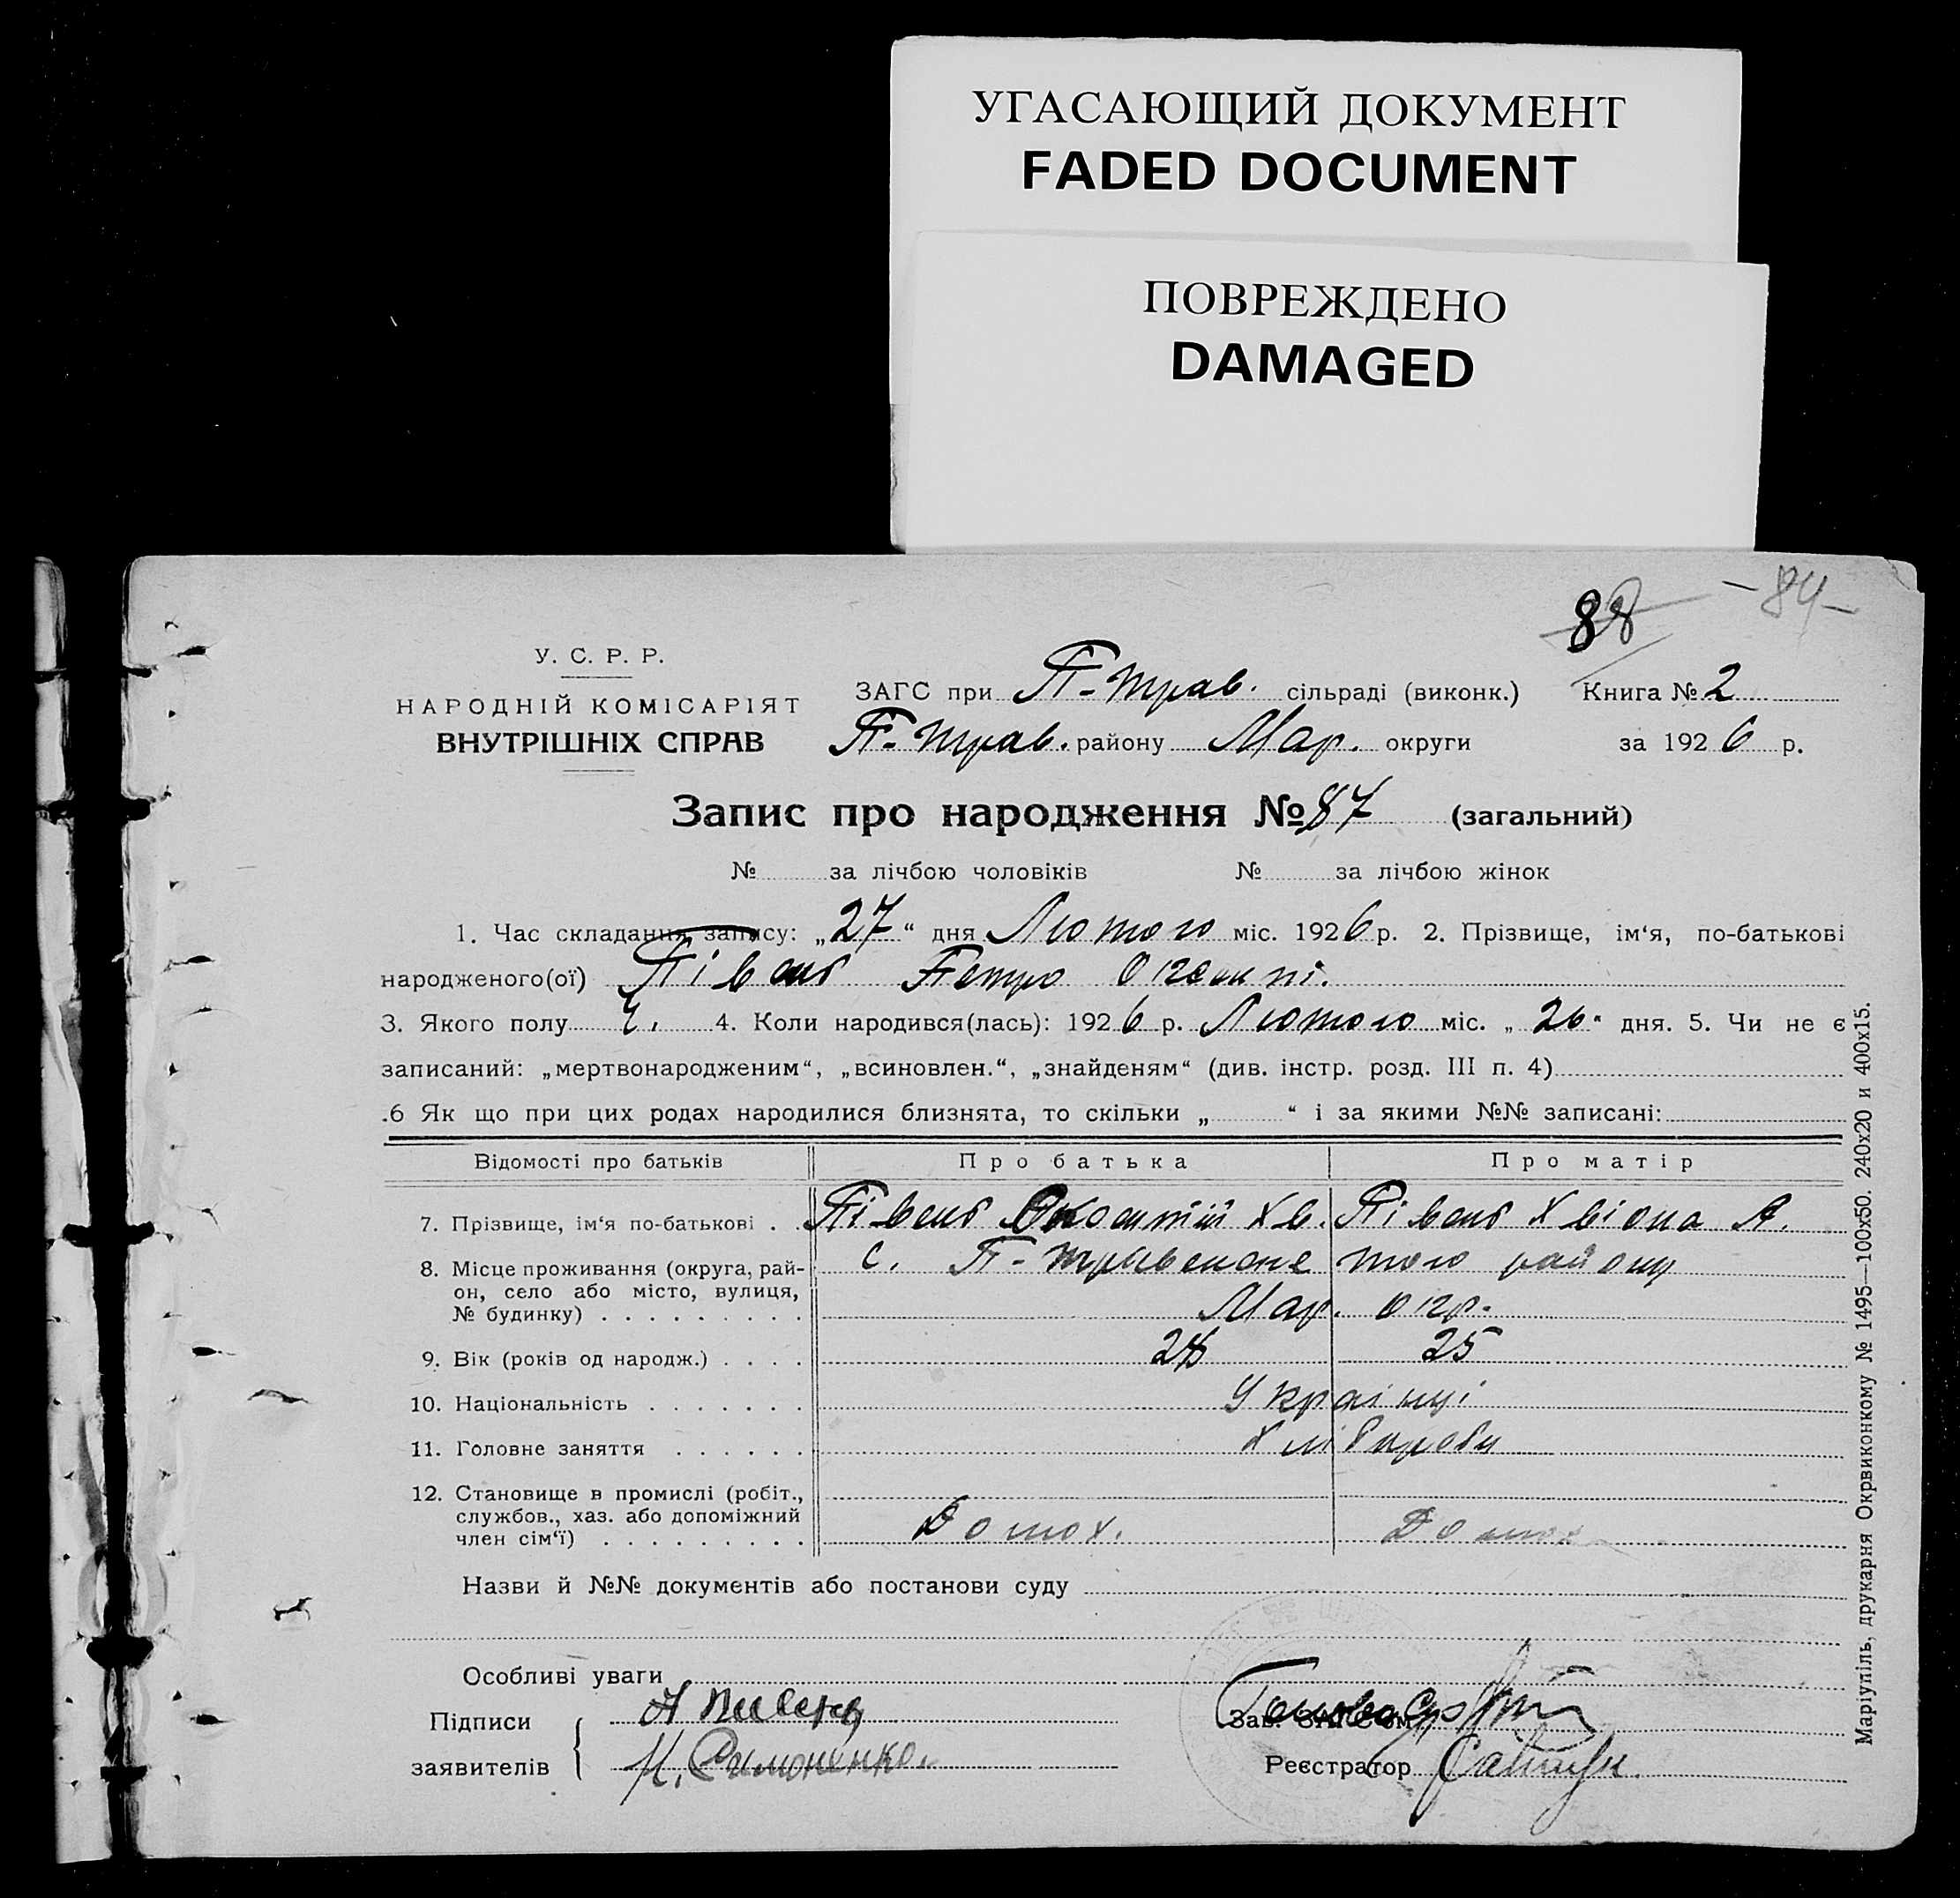 УГАСАЮЩИЙ ДОКУМЕНТ
FADED DOCUMENT
ПОВРЕЖДЕНО
DAMAGED
88 -84-
У. С. Р. Р.
НАРОДНІЙ КОМІСАРІЯТ
ВНУТРІШНІХ СПРАВ
ЗАГС при П-трав. сільраді (виконк.) Книга № 2
П-трав. району Мар. округи за 1926 р.
Запис про народження № 87 (загальний)
№ за лічбою чоловіків № за лічбою жінок
1. Час складання запису: „27“ дня Лютого міс. 1926 р. 2. Прізвище, ім‘я, по-батькові
народженого(ої) Півень Петро
3. Якого полу Ч. 4. Коли народився(лась): 1926 р. Лютого міс. „26“ дня. 5. Чи не є
записаний: „мертвонародженим“, „всиновлен.“, „знайденям“ (див. інстр. розд. III п. 4)
.6 Як що при цих родах народилися близнята, то скільки „ “ і за якими №№ записані:
Відомості про батьків Про батька Про матір
7. Прізвище, ім‘я по-батькові . . Півень Хв. Півень Хвіона А.
8. Місце проживання (округа, рай-он, село або місто, вулиця, № будинку) . . . . . . . . . с. П-травенэне того району
Мар. окр.
9. Вік (років од народж.) . . . . 25
10. Національність . . . . . . . Українці
11. Головне заняття . . . . . . Хлібороби
12. Становище в промислі (робіт.,
службов., хаз. або допоміжний
член сім‘ї) . . . . . . . . . Домох. Домох
Назви й №№ документів або постанови суду
Особливі уваги
Підписи
заявителів
Н. Симоненко.
Зав. ЗАГС‘ом
Реєстратор
Маріупіль, друкарня Окрвиконкому № 1495—100х50. 240х20 и 400х15.